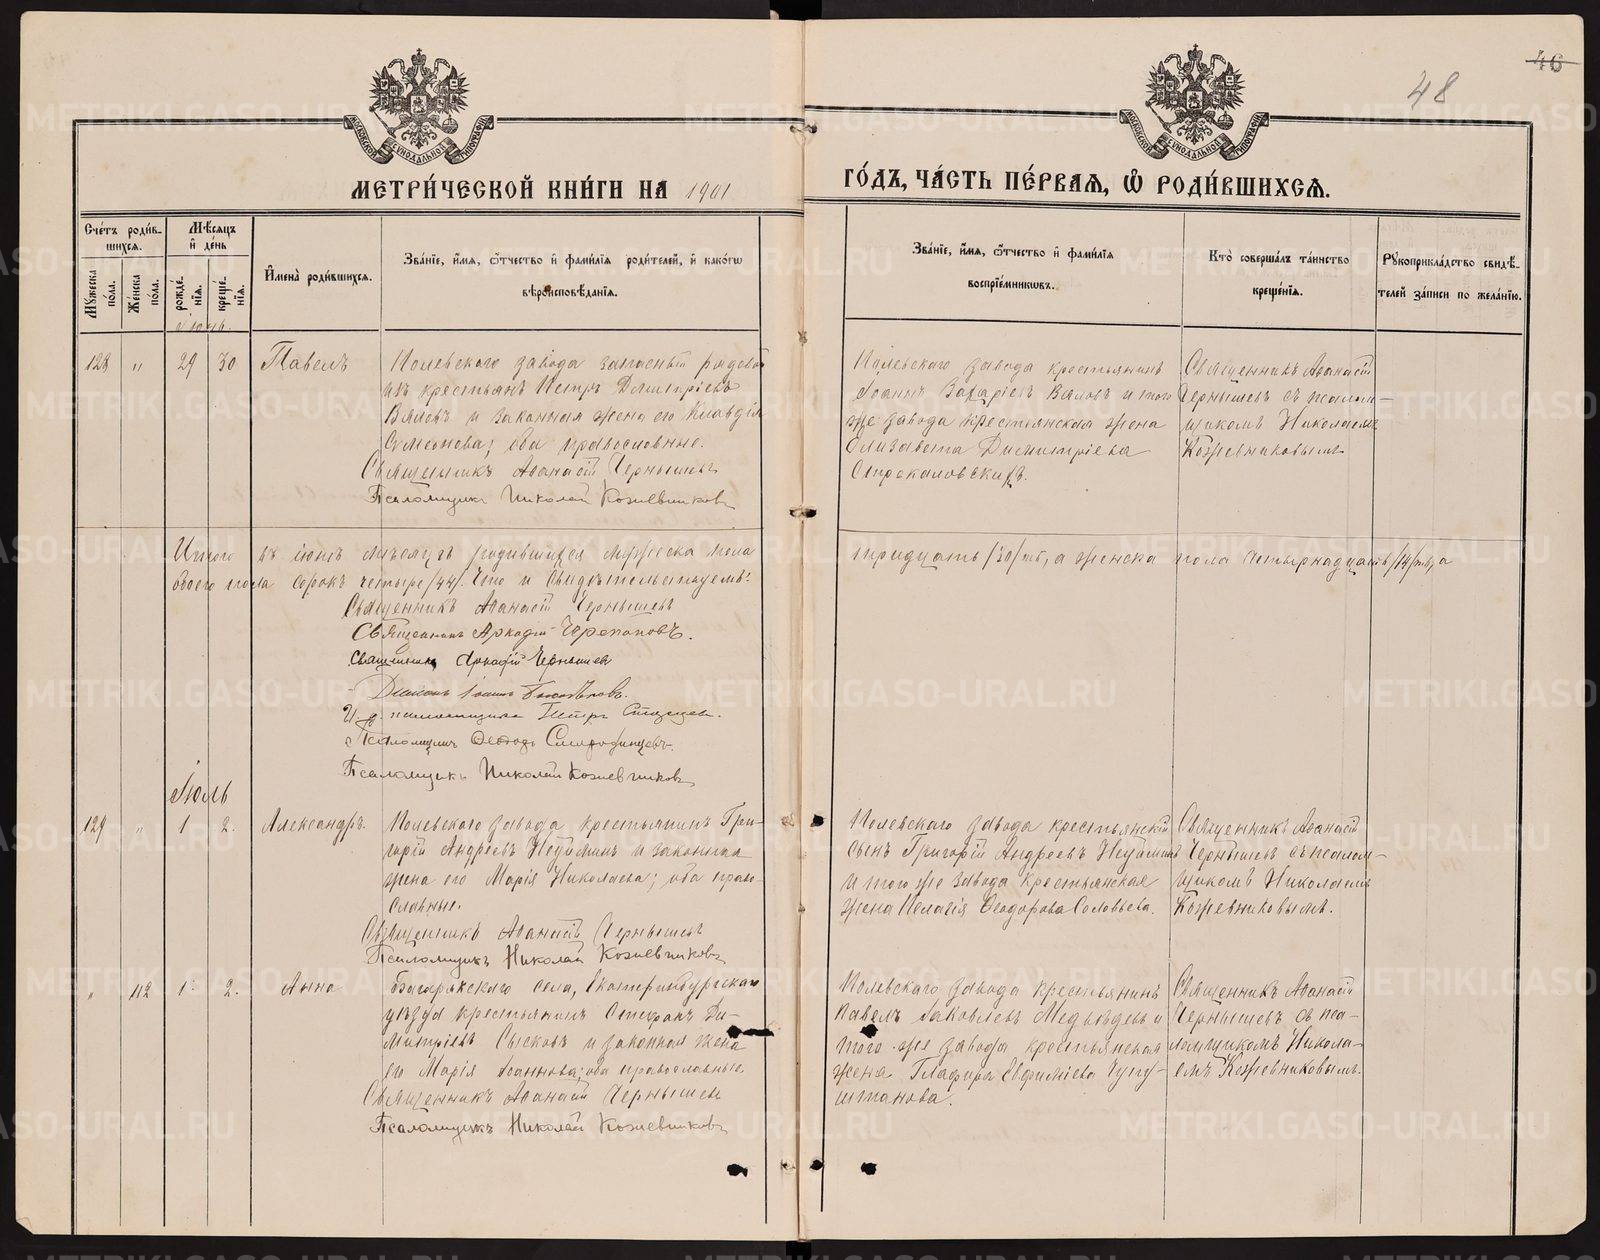 46
48
МЕТРИ́ЧЕСКОЙ КНИ́ГИ НА 1901
ГО́ДЪ, ЧА́СТЬ ПЕ́РВАЯ, Ѽ РОДИ́ВШИХСЯ.
МОСКОВСКОЙ СѴНОДАЛЬНОЙ ТИПОГРАФІИ
МОСКОВСКОЙ СѴНОДАЛЬНОЙ ТИПОГРАФІИ
Сче́тъ роди́вшихся.
Мꙋ́жеска по́ла.
Же́нска по́ла.
Мѣ́сяцъ и҆ де́нь
рожде́нїя.
креще́нїя.
И҆мена̀ роди́вшихся.
Зва́нїе, и҆́мя, ѻ҆́тчество и҆ фами́лїя роди́телей, и҆ како́гѡ
вѣроисповѣ́данїя.
Зва́нїе, и҆́мя, ѻ҆́тчество и҆ фами́лїя
воспрїе́мникѡвъ.
Кто̀ соверша́лъ та́инство
креще́нїя.
Рꙋкоприкла́дство свидѣ́телей за́писи по жела́нїю.
Іюнь.
128 " 29 30 Павелъ
Полевского завода запасный рядовой
изъ крестьянъ Петръ Димитріевъ
Вяловъ и законная жена его Клавдія
Симеонова; оба православные.
Священникъ Аѳанасій Чернышевъ
Псаломщикъ Николай Кожевниковъ
Полевского завода крестьянинъ
Іоаннъ Захаріевъ Вяловъ и того
же завода крестьянская жена
Елизавета Димитріева
Священникъ Аѳанасій
Чернышевъ съ псалом-
щикомъ Николаемъ
Кожевниковымъ
Итого въ іюнѣ мѣсяцѣ родившихся мужеска пола тридцать /30/ть, а женска пола четырнадцать /14/ть, а
обоего пола сорокъ четыре /44/. Что и свидѣтельствуемъ:
Священникъ Аѳанасій Чернышевъ
Священникъ Аркадій Черепановъ.
Священникъ Аркадій Чернышев
Діаконъ Іоаннъ
И. д. псаломщика Петръ
Псаломщикъ Ѳеодоръ Смородинцевъ.
Псаломщикъ Николай Кожевниковъ
Іюль
129 " 1 2. Александръ.
Полевского завода крестьянинъ Гри-
горій Андреевъ Недоминъ и законная
жена его Марія Николаева; оба право-
славные.
Священникъ Аѳанасій Чернышевъ
Псаломщикъ Николай Кожевниковъ
Полевского завода крестьянскій
сынъ Григорій Андреевъ
и того же завода крестьянская
жена Пелагія Ѳеодорова Соловьева.
Священникъ Аѳанасій
Чернышевъ съ псалом-
щикомъ Николаемъ
Кожевниковымъ.
" 112 1 2. Анна
села, Екатеринбургскаго
уѣзда крестьянинъ Стефанъ Ди-
митріевъ Сысковъ и законная жена
его Марія Іоаннова; оба православные
Священникъ Аѳанасій Чернышев
Псаломщикъ Николай Кожевниковъ
Полевского завода крестьянинъ
Павелъ Іаковлевъ Медвѣдевъ и
того же завода крестьянская
жена Глафира Евфиміева
Священникъ Аѳанасій
Чернышевъ съ пса-
ломщикомъ Никола-
емъ Кожевниковымъ.
METRIKI.GASO-URAL.RU